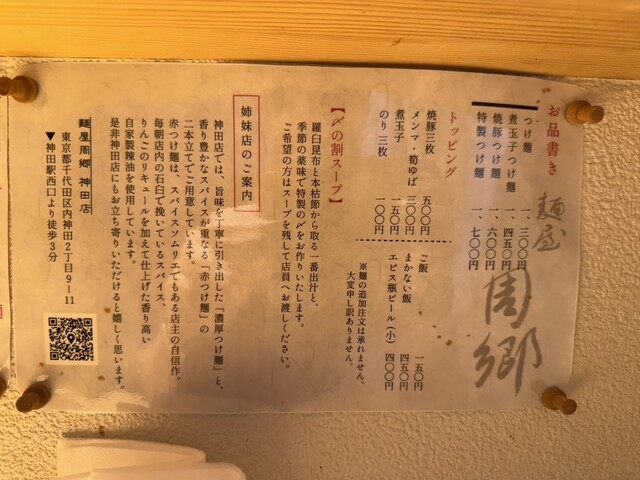 お品書き
麺屋 周郷
つけ麺 一、三〇〇円
煮玉子つけ麺 一、四五〇円
焼豚つけ麺 一、六〇〇円
特製つけ麺 一、七〇〇円
トッピング
焼豚三枚 五〇〇円
メンマ・筍ゆば 三〇〇円
煮玉子 一五〇円
のり 三枚 一〇〇円
ご飯 一五〇円
まかない飯 四五〇円
エビス瓶ビール(小) 四〇〇円
※麺の追加注文は承れません。
大変申し訳ありません。
【〆の割スープ】
羅臼昆布と本枯節から取る一番出汁と、
季節の薬味で特製の〆をお作りいたします。
ご希望の方はスープを残して店員へお渡しください。
姉妹店のご案内
神田店では、旨味を丁寧に引き出した「濃厚つけ麺」と、
香り豊かなスパイスが重なる「赤つけ麺」の
二本立てでご用意しています。
赤つけ麺は、スパイスソムリエでもある店主の自信作。
毎朝店内の石臼で挽いているスパイス、
りんごのリキュールを加えて仕上げた香り高い
自家製辣油を使用しています。
是非神田店にもお立ち寄りいただけると嬉しく思います。
麺屋周郷 神田店
東京都千代田区内神田2丁目9-11
▼神田駅西口より徒歩3分